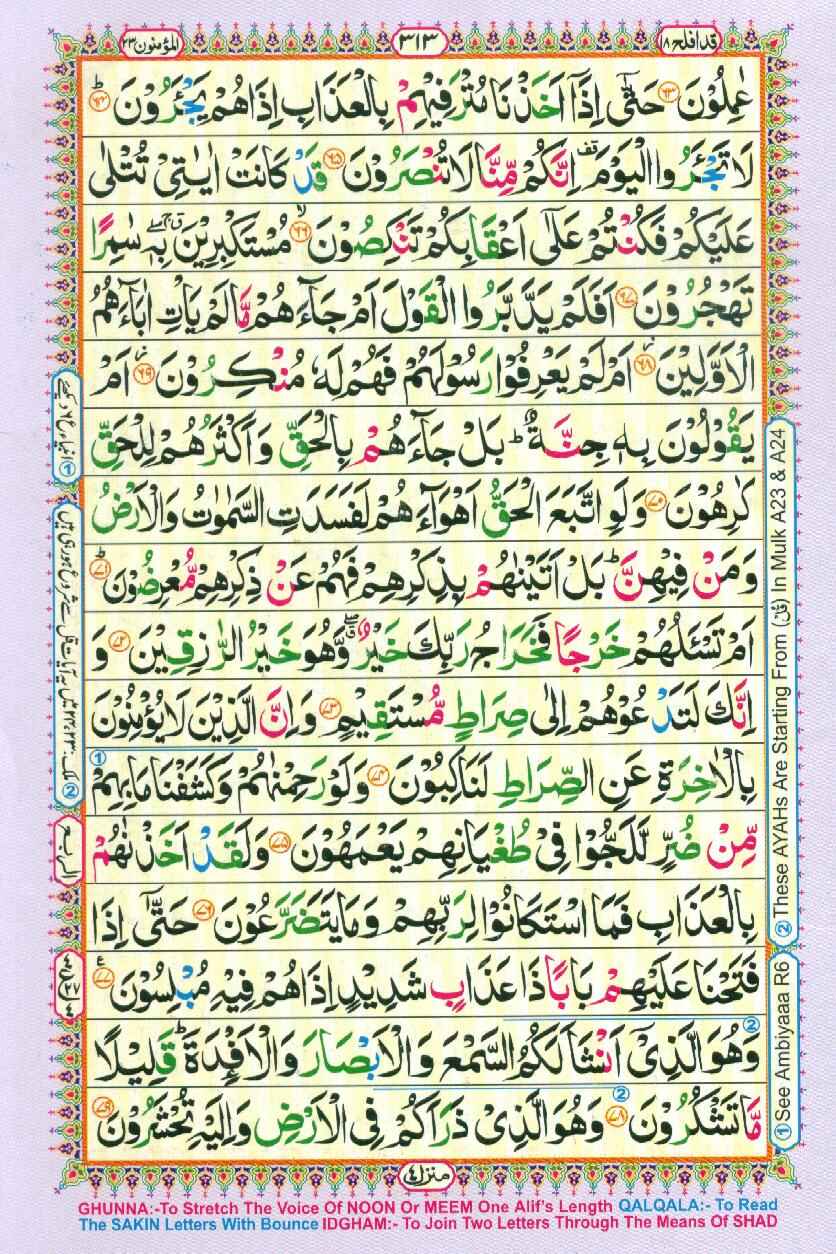 قد افلح ١٨
٣١٣
المؤمنون ٢٣
عٰمِلُوْنَ ۝۶۳ حَتّٰٓى اِذَاۤ اَخَذْنَا مُتْرَفِیْهِمْ بِالْعَذَابِ اِذَا هُمْ یَجْـَٔرُوْنَ ۝۶۴ؕ
لَا تَجْـَٔرُوا الْیَوْمَ ۫ اِنَّكُمْ مِّنَّا لَا تُنْصَرُوْنَ ۝۶۵ قَدْ كَانَتْ اٰیٰتِیْ تُتْلٰى
عَلَیْكُمْ فَكُنْتُمْ عَلٰۤى اَعْقَابِكُمْ تَنْكِصُوْنَ ۝۶۶ۙ مُسْتَكْبِرِیْنَ بِهٖ سٰمِرًا
تَهْجُرُوْنَ ۝۶۷ اَفَلَمْ یَدَّبَّرُوا الْقَوْلَ اَمْ جَآءَهُمْ مَّا لَمْ یَاْتِ اٰبَآءَهُمُ
الْاَوَّلِیْنَ ۝۶۸ؗ اَمْ لَمْ یَعْرِفُوْا رَسُوْلَهُمْ فَهُمْ لَهٗ مُنْكِرُوْنَ ۝۶۹ؗ اَمْ
یَقُوْلُوْنَ بِهٖ جِنَّةٌ ؕ بَلْ جَآءَهُمْ بِالْحَقِّ وَاَكْثَرُهُمْ لِلْحَقِّ
كٰرِهُوْنَ ۝۷۰ وَلَوِ اتَّبَعَ الْحَقُّ اَهْوَآءَهُمْ لَفَسَدَتِ السَّمٰوٰتُ وَالْاَرْضُ
وَمَنْ فِیْهِنَّ ؕ بَلْ اَتَیْنٰهُمْ بِذِكْرِهِمْ فَهُمْ عَنْ ذِكْرِهِمْ مُّعْرِضُوْنَ ۝۷۱ؕ
اَمْ تَسْـَٔلُهُمْ خَرْجًا فَخَرَاجُ رَبِّكَ خَیْرٌ ۖ وَّهُوَ خَیْرُ الرّٰزِقِیْنَ ۝۷۲ وَ
اِنَّكَ لَتَدْعُوْهُمْ اِلٰى صِرَاطٍ مُّسْتَقِیْمٍ ۝۷۳ وَاِنَّ الَّذِیْنَ لَا یُؤْمِنُوْنَ
بِالْاٰخِرَةِ عَنِ الصِّرَاطِ لَنٰكِبُوْنَ ۝۷۴ وَلَوْ رَحِمْنٰهُمْ وَكَشَفْنَا مَا بِهِمْ
مِّنْ ضُرٍّ لَّلَجُّوْا فِیْ طُغْیَانِهِمْ یَعْمَهُوْنَ ۝۷۵ وَلَقَدْ اَخَذْنٰهُمْ
بِالْعَذَابِ فَمَا اسْتَكَانُوْا لِرَبِّهِمْ وَمَا یَتَضَرَّعُوْنَ ۝۷۶ حَتّٰۤى اِذَا
فَتَحْنَا عَلَیْهِمْ بَابًا ذَا عَذَابٍ شَدِیْدٍ اِذَا هُمْ فِیْهِ مُبْلِسُوْنَ ۝۷۷
وَهُوَ الَّذِیْۤ اَنْشَاَ لَكُمُ السَّمْعَ وَالْاَبْصَارَ وَالْاَفْـِٕدَةَ ؕ قَلِیْلًا
مَّا تَشْكُرُوْنَ ۝۷۸ وَهُوَ الَّذِیْ ذَرَاَكُمْ فِی الْاَرْضِ وَاِلَیْهِ تُحْشَرُوْنَ ۝۷۹
منزل ٤
② These AYAHs Are Starting From (قُلْ) In Mulk A23 & A24
① See Ambiyaaa R6
GHUNNA:-To Stretch The Voice Of NOON Or MEEM One Alif's Length QALQALA:- To Read
The SAKIN Letters With Bounce IDGHAM:- To Join Two Letters Through The Means Of SHAD